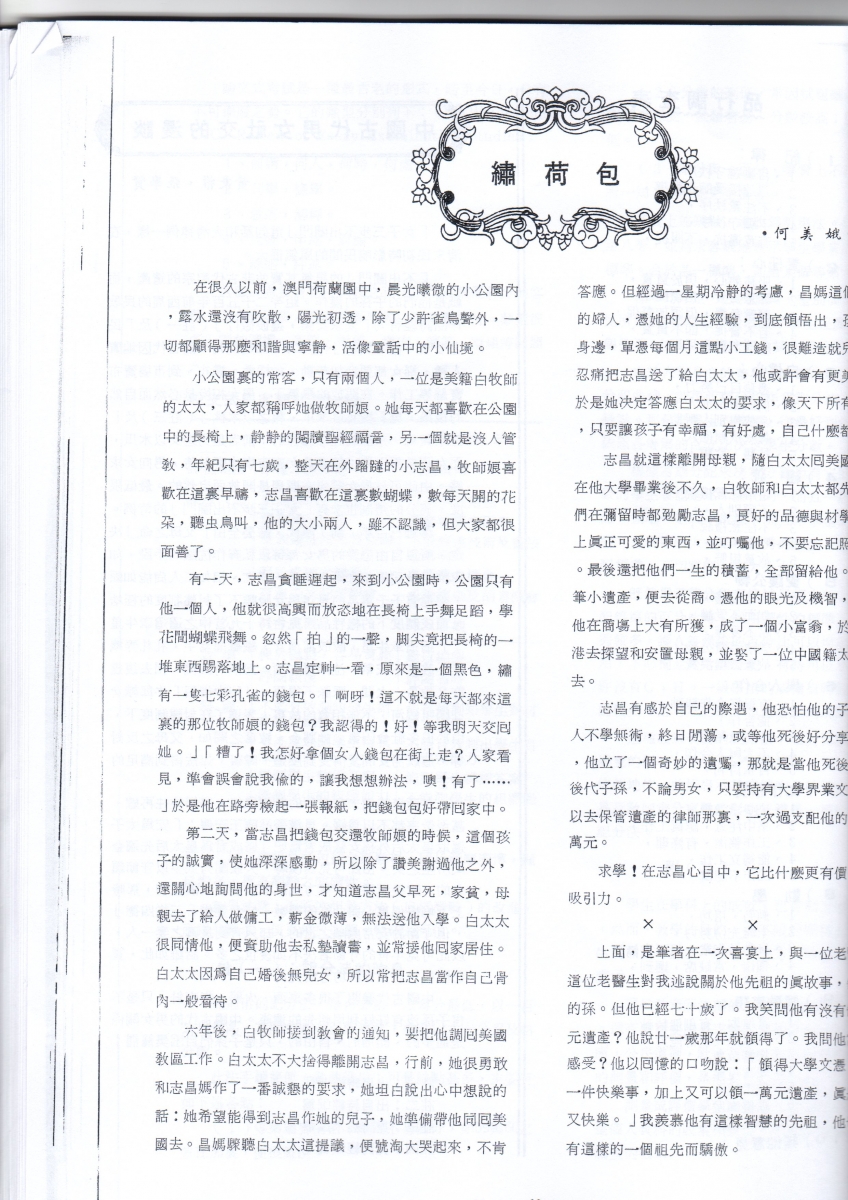 繡荷包
•何美娥
在很久以前，澳門荷蘭園中，晨光曦微的小公園內
，露水還沒有吹散，陽光初透，除了少許雀鳥聲外，一
切都顯得那麼和諧與寧靜，活像童話中的小仙境。
小公園裏的常客，只有兩個人，一位是美籍白牧師
的太太，人家都稱呼她做牧師娘。她每天都喜歡在公園
中的長椅上，靜靜的閱讀聖經福音，另一個就是沒人管
教，年紀只有七歲，整天在外蹓躂的小志昌，牧師娘喜
歡在這裏早禱，志昌喜歡在這裏數蝴蝶，數每天開的花
朶，聽虫鳥叫，他的大小兩人，雖不認識，但大家都很
面善了。
有一天，志昌貪睡遲起，來到小公園時，公園只有
他一個人，他就很高興而放恣地在長椅上手舞足蹈，學
花間蝴蝶飛舞。忽然「拍」的一聲，脚尖竟把長椅的一
堆東西踢落地上。志昌定神一看，原來是一個黑色，繡
有一隻七彩孔雀的錢包。「啊呀！這不就是每天都來這
裏的那位牧師娘的錢包？我認得的！好！等我明天交囘
她。」「糟了！我怎好拿個女人錢包在街上走？人家看
見，準會誤會說我偷的，讓我想想辦法，噢！有了……
」於是他在路旁檢起一張報紙，把錢包包好帶囘家中。
第二天，當志昌把錢包交還牧師娘的時候，這個孩
子的誠實，使她深深感動，所以除了讚美謝過他之外，
還關心地詢問他的身世，才知道志昌父早死，家貧，母
親去了給人做傭工，薪金微薄，無法送他入學。白太太
很同情他，便資助他去私塾讀書，並常接他囘家居住。
白太太因爲自己婚後無兒女，所以常把志昌當作自己骨
肉一般看待。
六年後，白牧師接到教會的通知，要把他調囘美國
教區工作。白太太不大捨得離開志昌，行前，她很勇敢
和志昌媽作了一番誠懇的要求，她坦白說出心中想說的
話：她希望能得到志昌作她的兒子，她準備帶他同囘美
國去。昌媽驟聽白太太這提議，便號淘大哭起來，不肯
答應。但經過一星期冷靜的考慮，昌媽這個
的婦人，憑她的人生經驗，到底領悟出，孩
身邊，單憑每個月這點小工錢，很難造就兒
忍痛把志昌送了給白太太，他或許會有更美
於是她決定答應白太太的要求，像天下所有
，只要讓孩子有幸福，有好處，自己什麼都
志昌就這樣離開母親，隨白太太囘美國
在他大學畢業後不久，白牧師和白太太都先
們在彌留時都勉勵志昌，良好的品德與材學
上眞正可愛的東西，並叮囑他，不要忘記照
。最後還把他們一生的積蓄，全部留給他。
筆小遺產，便去從商。憑他的眼光及機智，
他在商場上大有所獲，成了一個小富翁，於
港去探望和安置母親，並娶了一位中國籍太
去。
志昌有感於自己的際遇，他恐怕他的子
人不學無術，終日閒蕩，或等他死後好分享
，他立了一個奇妙的遺囑，那就是當他死後
後代子孫，不論男女，只要持有大學界業文
以去保管遺產的律師那裏，一次過支配他的
萬元。
求學！在志昌心目中，它比什麼更有價
吸引力。
×　×
上面，是筆者在一次喜宴上，與一位老
這位老醫生對我述說關於他先祖的眞故事，
的孫。但他已經七十歲了。我笑問他有沒有
元遺產？他說廿一歲那年就領得了。我問他
感受？他以囘憶的口吻說：「領得大學文憑
一件快樂事，加上又可以領一萬元遺產，眞
又快樂。」我羨慕他有這樣智慧的先祖，他
有這樣的一個祖先而驕傲。